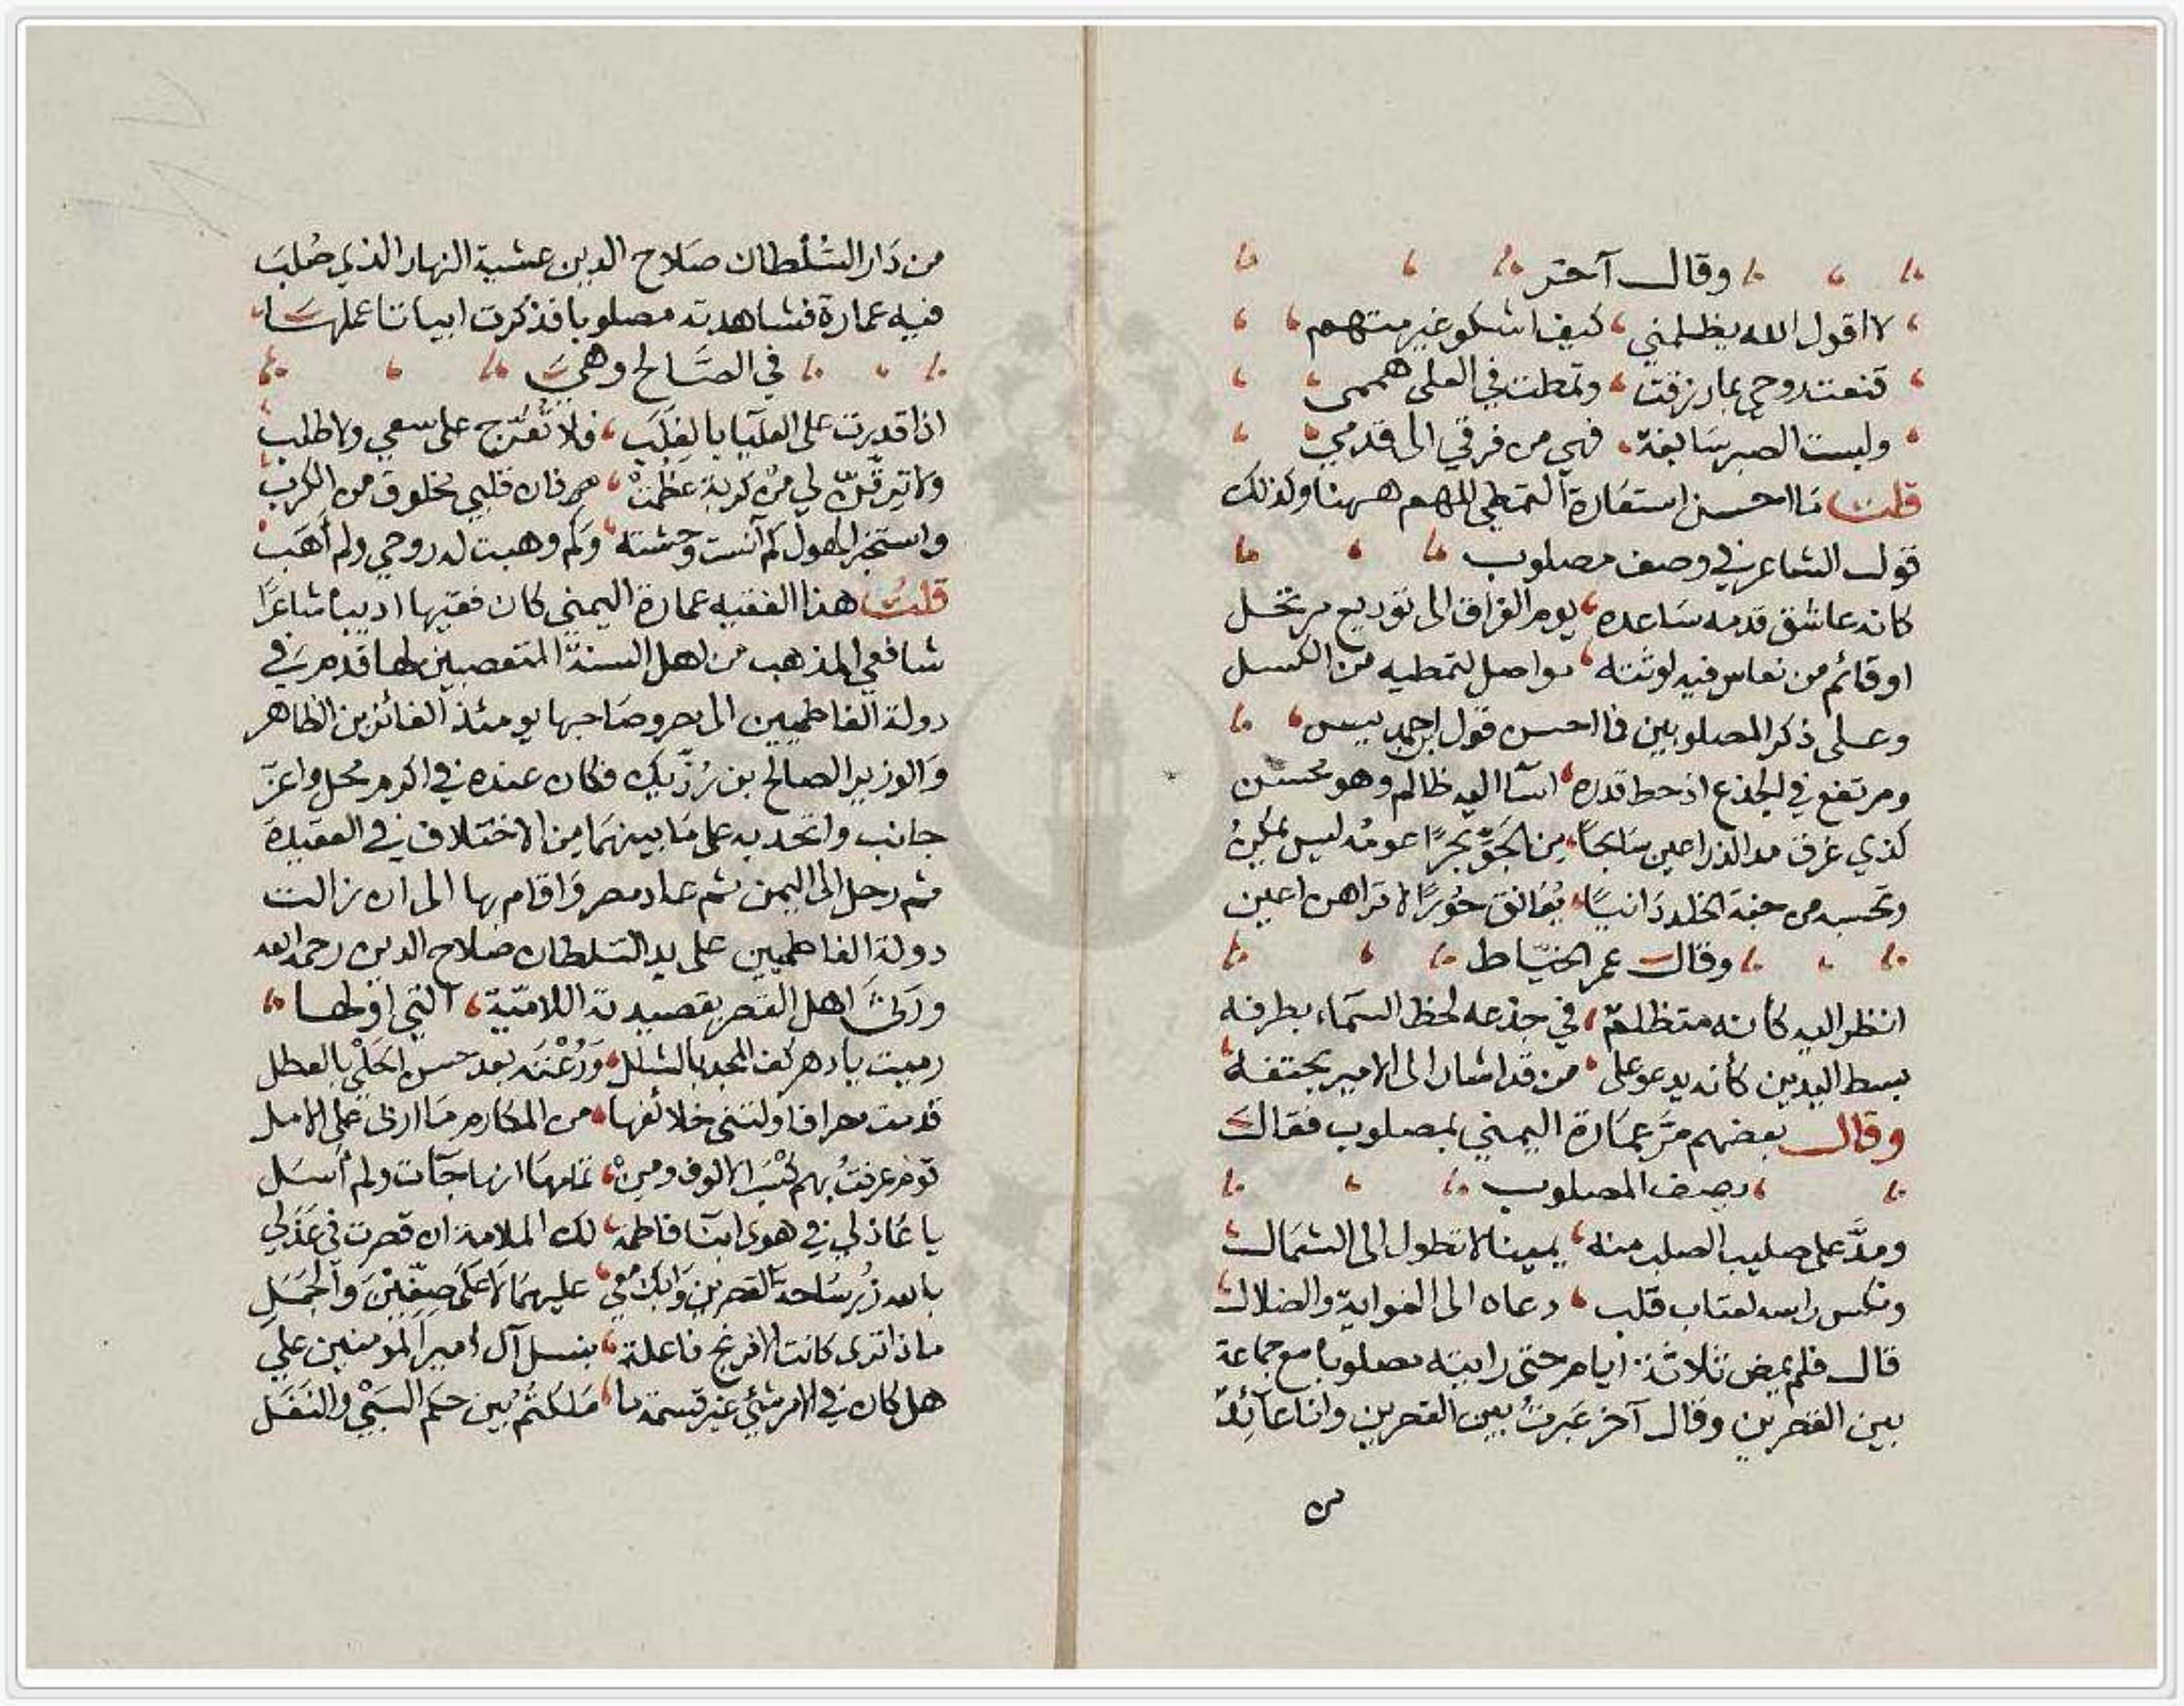 وقال آخر
لا اقول الله يظلمني كيف اشكو غير متهم
قنعت روحي بما رزقت وتمطت في العلى هممى
ولبست الصبر سابغة فهي من فرقي الى قدمي
قلت ما احسن استعارة التمطي للهمم ههنا وكذلك
قول الشاعر في وصف مصلوب
كانه عاشق قد مد ساعده يوم الفراق الى توديع مرتحل
او قائم من نعاس فيه لوثته مواصل لتمطيه من الكسل
وعلى ذكر المصلوبين فما احسن قول ابن حمديس
ومرتفع في الجذع اذ حط قدره اسآ اليه ظالم وهو محسن
كذي غرق مد الذراعين سابحا من الجوّ بحرًا عومُه ليس يمكنُ
وتحسبه من جنة الخلد دانيًا يُعانق حُورًا لا تراهن اعين
وقال عمر الخيّاط
انظر اليه كأنه متظلم في جذعه لحظ السمآء بطرفه
بسط اليدين كأنه يدعو على من قد اشار الى الامير بحتفه
وقال بعضهم مرّ عمارة اليمني بمصلوب فقال
يصف المصلوب
ومدّ على صليب الصلب منه يمينا لا تطول الى الشمال
ونكس راسه لعتاب قلب دعاه الى الغواية والضلال
قال فلم يمض ثلاثة ايام حتى رايته مصلوبا مع جماعة
بين القصرين وقال آخر عبرتُ بين القصرين وانا عآئد
من
من دار السُّلطان صلاح الدين عشية النهار الذي صُلب
فيه عمارة فشاهدته مصلوبا فذكرت ابياتا عملها
في الصّالح وهي
اذا قدرت على العليا بالغلب فلا تعرّج على سعي ولا طلب
ولا ترقّنّ لي من كربة عظمت فان قلبي مخلوق من الكرب
واستخبر الهول كم آنست وحشته وكم وهبت له روحي ولم أهب
قلت هذا الفقيه عمارة اليمني كان فقيها اديبا شاعرًا
شافعي المذهب من اهل السنة المتعصبين لها قدم في
دولة الفاطميين الى مصر وصاحبها يومئذ الفائز بن الظاهر
والوزير الصالح بن رُزّيك فكان عنده في اكرم محل واعزّ
جانب واتحد به على ما بينهما من الاختلاف في العقيدة
ثم رحل الى اليمن ثم عاد مصر واقام بها الى ان زالت
دولة الفاطميين على يد السلطان صلاح الدين رحمه الله
ورثى اهل القصر بقصيدته اللاميّة التي اولها
رميت يا دهر كف المجد بالشلل وَرُعْتَه بعد حسن الحَلْي بالعطل
قدمت مصر فاولتنى خلائفها من المكارم ما اربى على الامل
قوم عرفتُ بهم كَسْبَ الالوف ومن تمامها انها جآت ولم أسل
يا عاذلي في هوى ابنآ فاطمة لك الملامة ان قصرت في عَذَلي
بالله زُر ساحة القصرين وابك معي عليهما لا على صِفّين والجمل
ماذا ترى كانت الافرنج فاعلة بنسل آل امير المومنين علي
هل كان في الامر شئي غير قسمة ما ملكتُمُ بين حكم السَّبْي والنفل